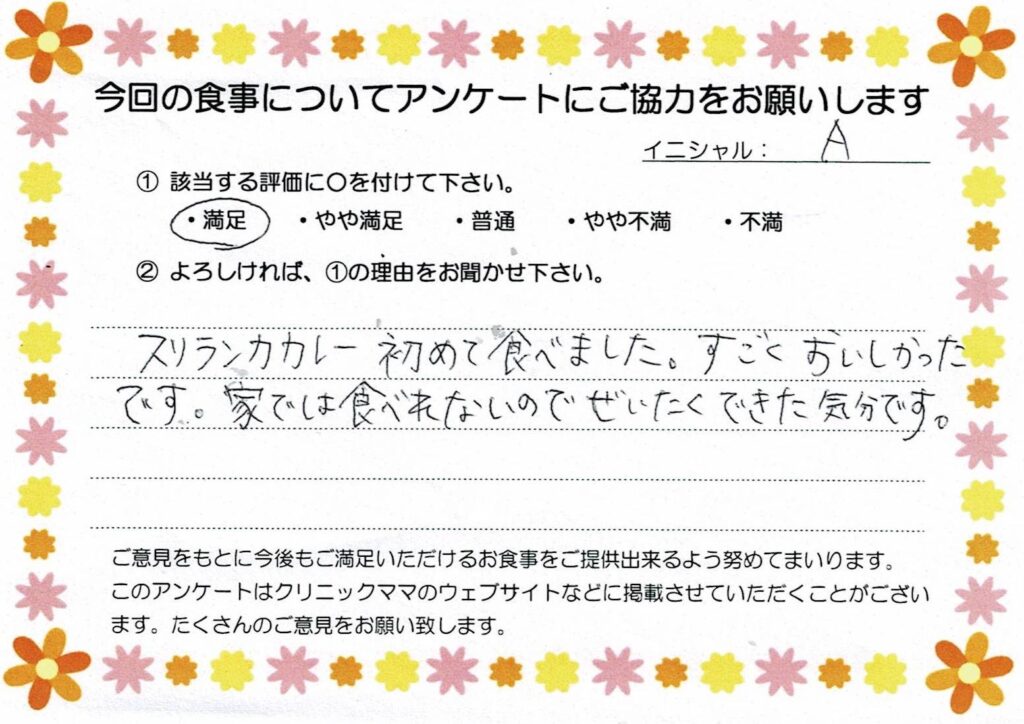 今回の食事についてアンケートにご協力をお願いします
イニシャル： A
① 該当する評価に〇を付けて下さい。
・満足 ・やや満足 ・普通 ・やや不満 ・不満
② よろしければ、①の理由をお聞かせ下さい。
スリランカカレー 初めて食べました。すごくおいしかった
です。家では食べれないのでぜいたくできた気分です。
ご意見をもとに今後もご満足いただけるお食事をご提供出来るよう努めてまいります。
このアンケートはクリニックママのウェブサイトなどに掲載させていただくことがござい
ます。たくさんのご意見をお願い致します。